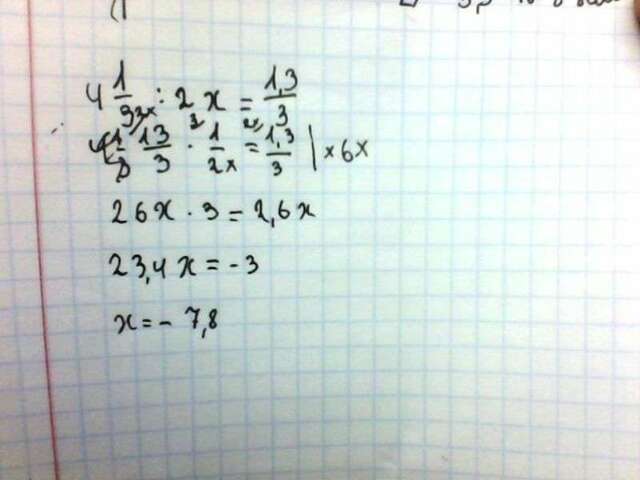 4 1/3 : 2x = 1,3/3
13/3 · 1/2x = 1,3/3 | × 6x
26x · 3 = 2,6x
23,4x = -3
x = - 7,8